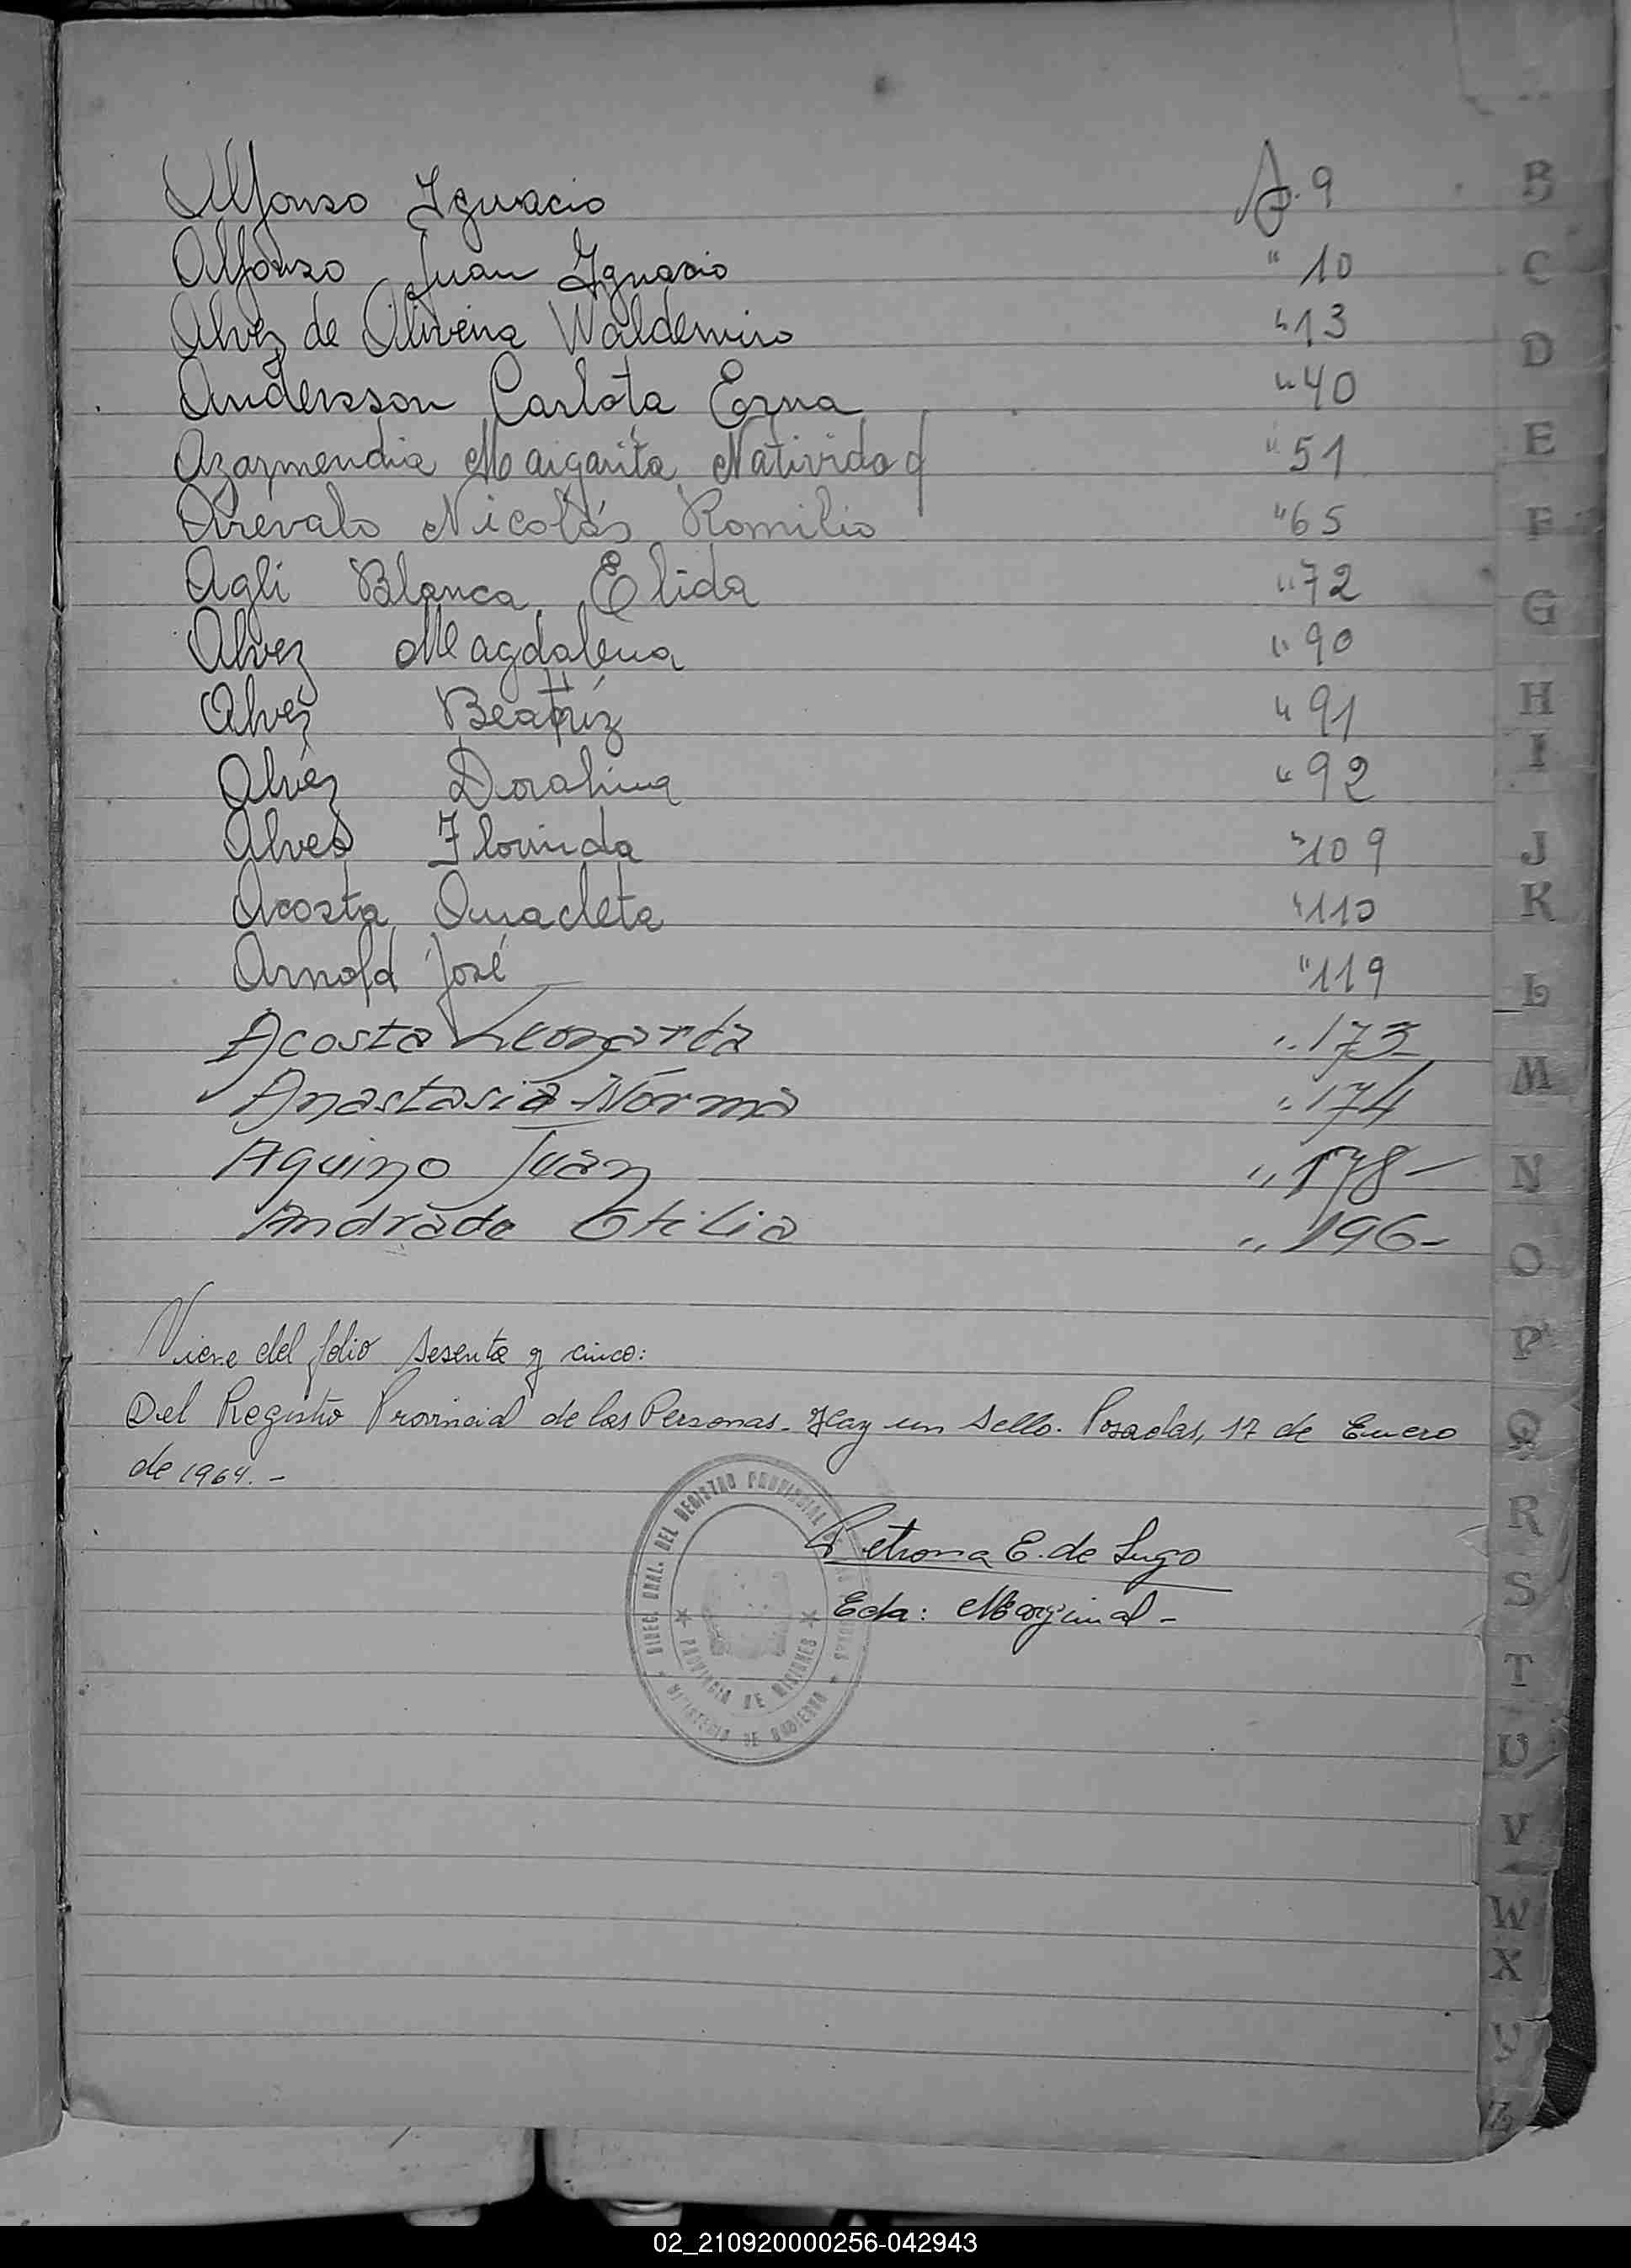 Alfonso Ignacio A. 9
Alfonso Juan Ignacio " 10
Alvez de Oliveira Waldemiro " 13
Andersson Carlota Erna " 40
Azarmendia Margarita Natividad " 51
Arévalo Nicolás Romilio " 65
Agli Blanca Elida " 72
Alvez Magdalena " 90
Alvez Beatríz " 91
Alvez Dorahina " 92
Alves Florinda " 109
Acosta Anacleta " 110
Arnold José " 119
Acosta Leonarda " 173-
Anastasia Norma " 174
Aquino Juan " 178-
Andrade Otilia " 196-
Viene del folio sesenta y cinco:
Del Registro Provincial de las Personas. Hay un sello. Posadas, 17 de Enero
de 1964.-
Petrona E. de Lugo
Eda: Marginal-
DIREC. GRAL. DEL REGISTRO PROVINCIAL DE LAS PERSONAS
PROVINCIA DE MISIONES
MINISTERIO DE GOBIERNO
B
C
D
E
F
G
H
I
J
K
L
M
N
O
P
Q
R
S
T
U
V
W
X
Y
Z
02_210920000256-042943